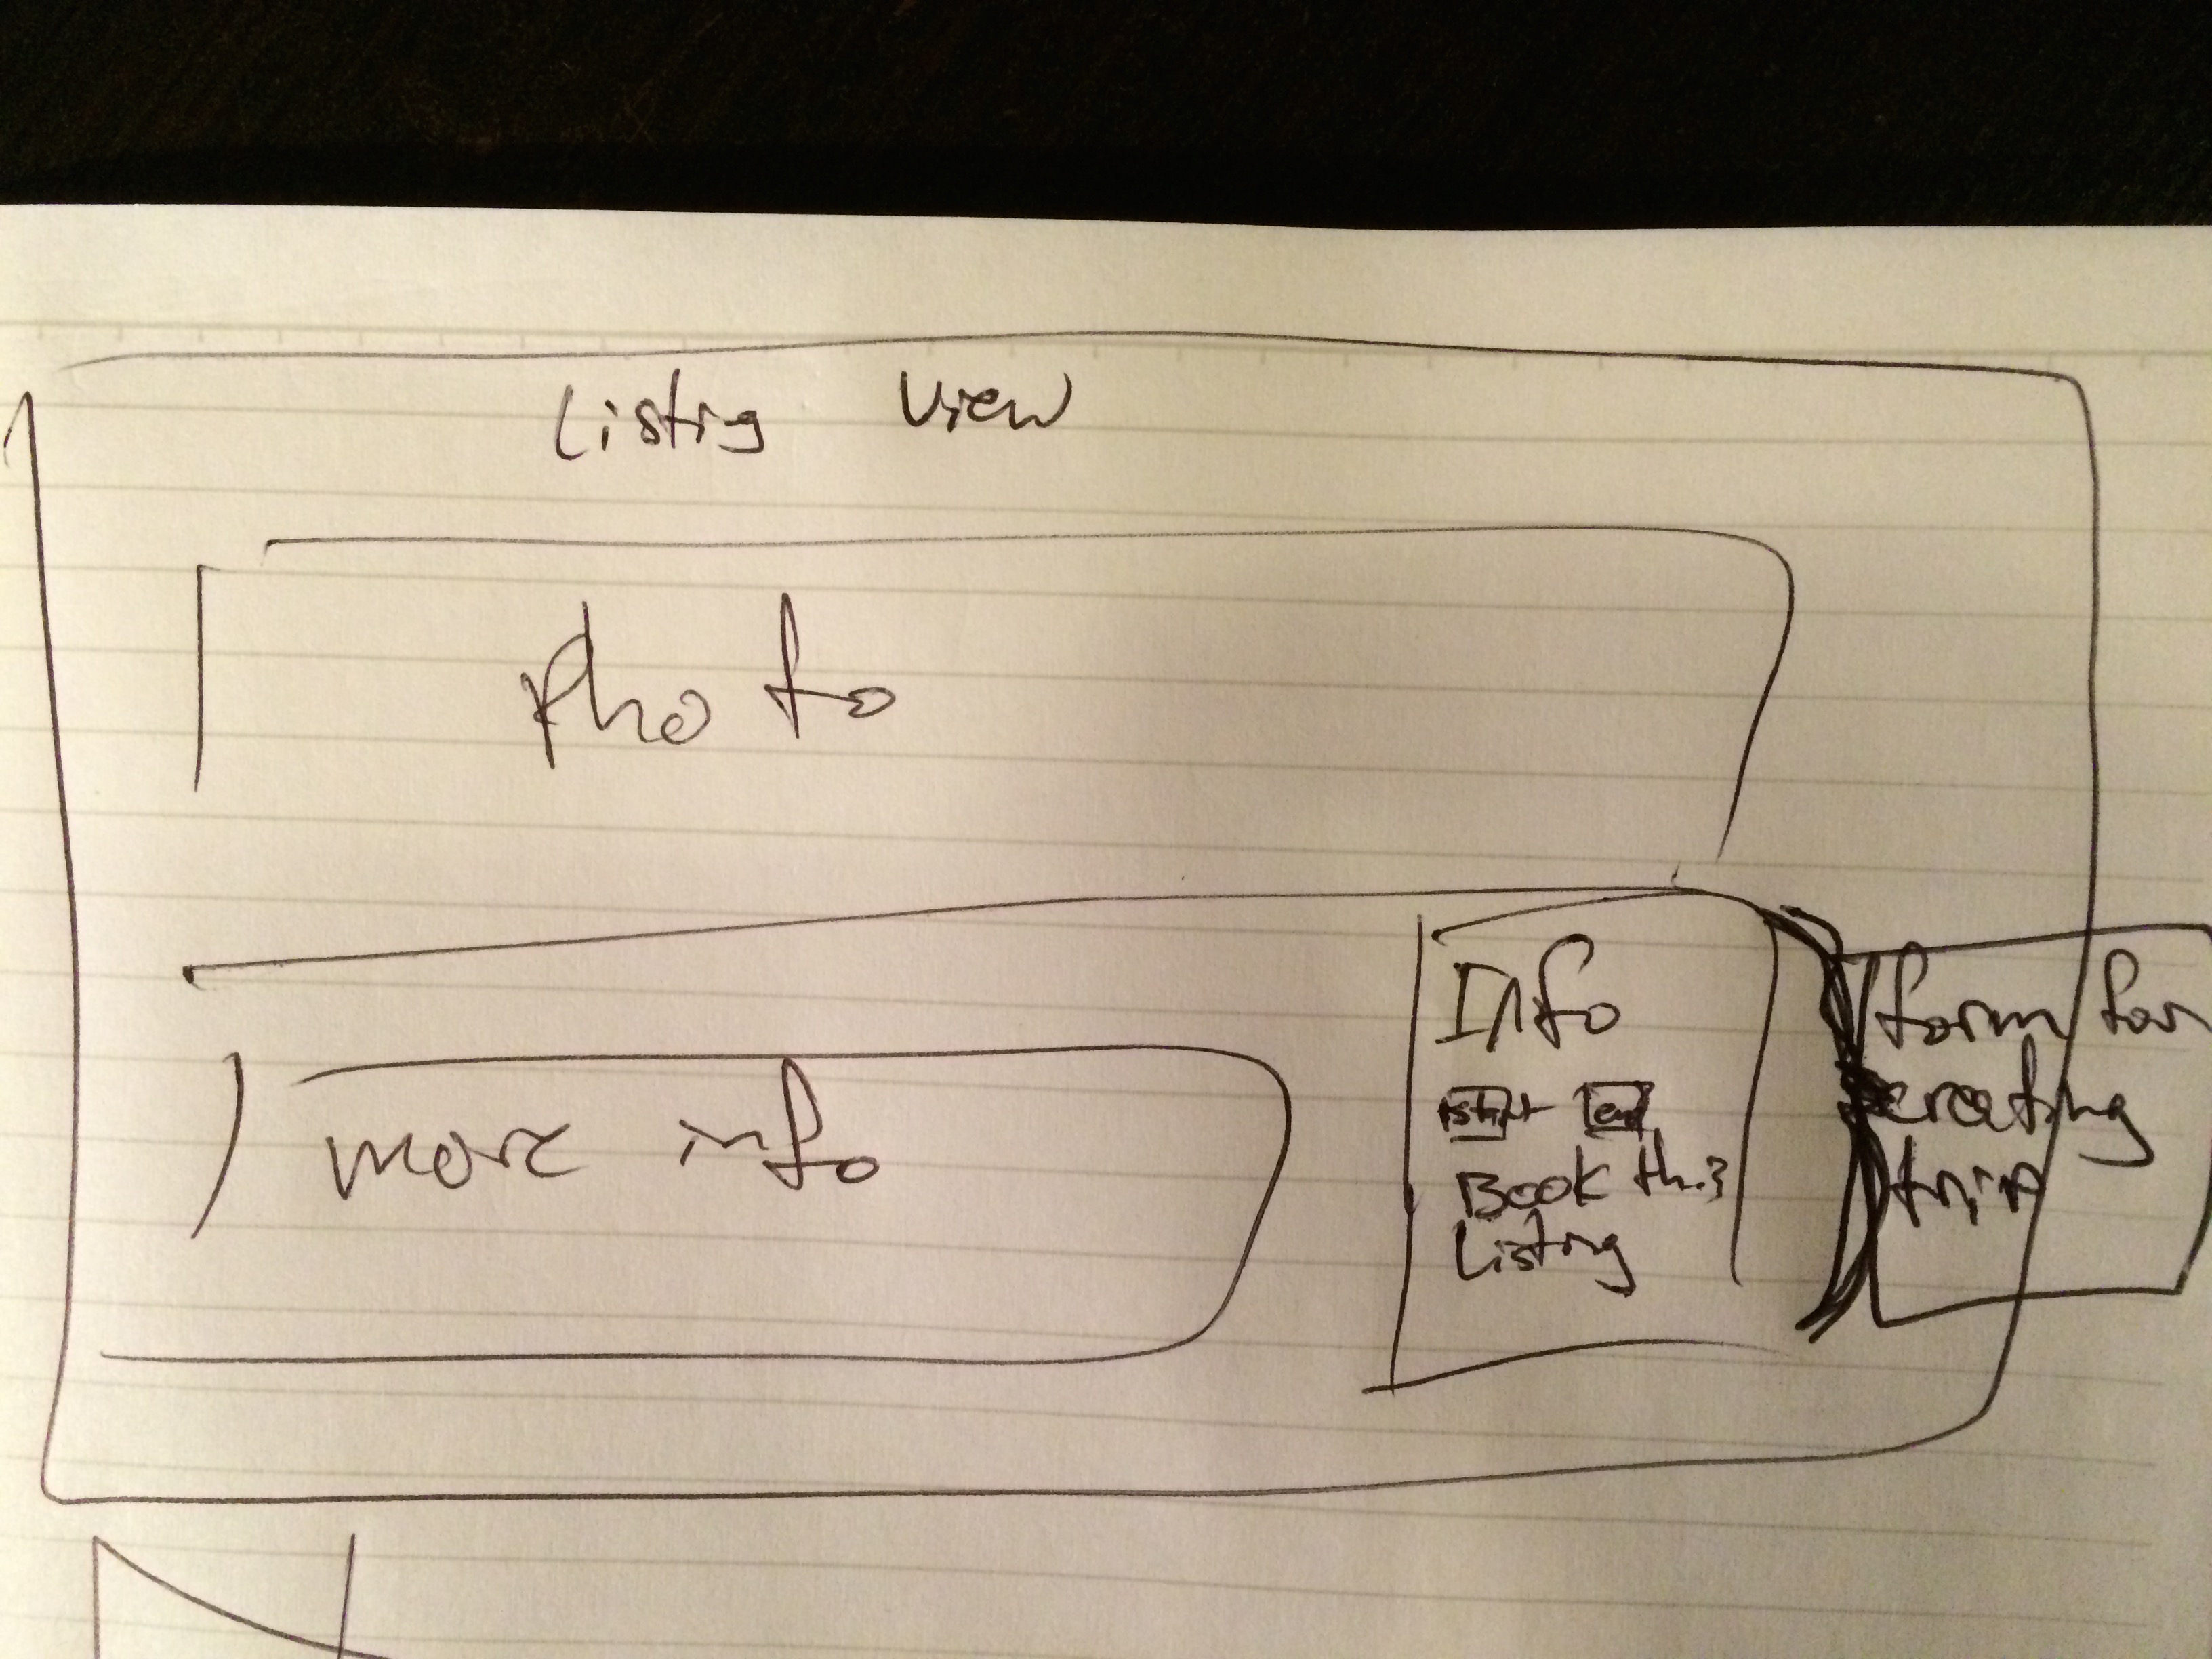 Listing View
Photo
more info
Info
start end
Book this
Listing
form for
creating
trip